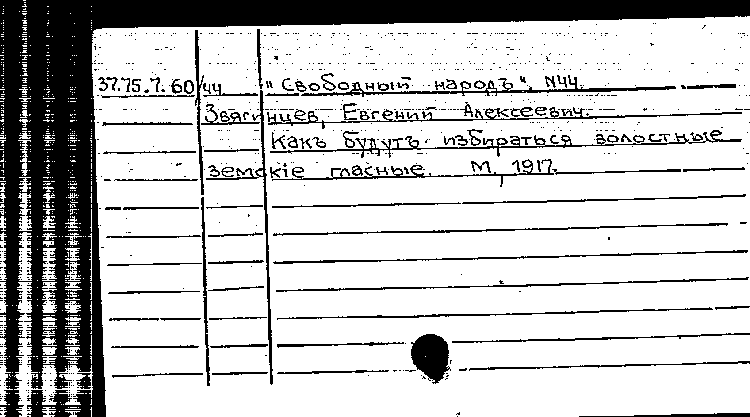 37.75.7.60/44. "Свободный народъ", N44.
Звягинцев, Евгений Алексеевич.
Какъ будутъ избираться волостные
земскіе гласные. М., 1917.